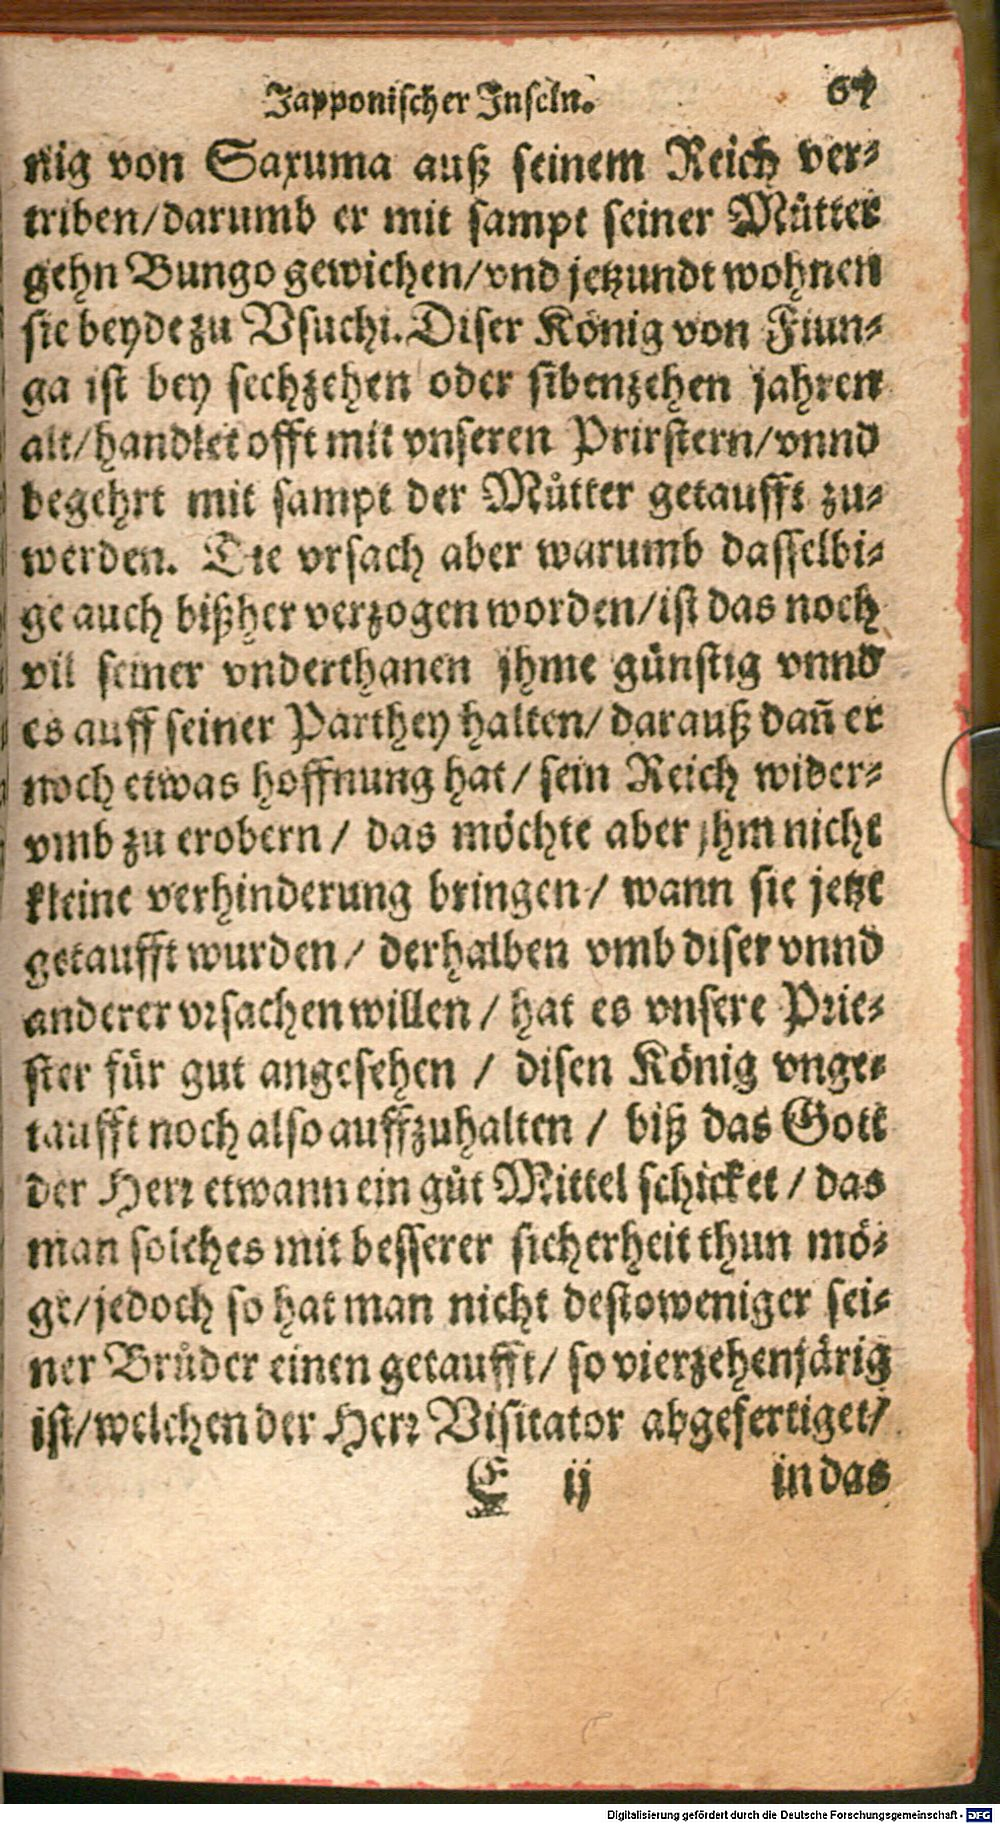 Japponischer Inseln. 67
nig von Saxuma auß seinem Reich ver⸗
triben/darumb er mit sampt seiner Můtter
gehn Bungo gewichen/vnd jetzundt wohnen
sie beyde zu Vsuchi. Diser König von Fiun⸗
ga ist bey sechzehen oder sibenzehen jahren
alt/handlet offt mit vnseren Prirstern/vnnd
begehrt mit sampt der Můtter getaufft zu⸗
werden. Die vrsach aber warumb dasselbi⸗
ge auch bißher verzogen worden/ist das noch
vil seiner vnderthanen jhme günstig vnnd
es auff seiner Parthey halten/ darauß dañ er
noch etwas hoffnung hat/ sein Reich wider⸗
vmb zu erobern/ das möchte aber jhm nicht
kleine verhinderung bringen/ wann sie jetzt
getaufft wurden/ derhalben vmb diser vnnd
anderer vrsachen willen/ hat es vnsere Prie⸗
ster für gut angesehen/ disen König vnge⸗
taufft noch also auffzuhalten/ biß das Gott
der Herr etwann ein gůt Mittel schicket/ das
man solches mit besserer sicherheit thun mö⸗
ge/jedoch so hat man nicht destoweniger sei⸗
ner Brůder einen getaufft/ so vierzehenjärig
ist/welchen der Herr Visitator abgefertiget/
E ij in das
Digitalisierung gefördert durch die Deutsche Forschungsgemeinschaft - DFG